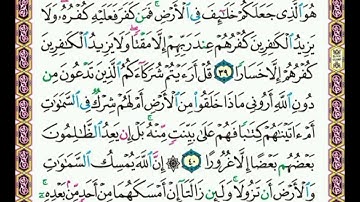 هُوَ ٱلَّذِى جَعَلَكُمْ خَلَٰٓئِفَ فِى ٱلْأَرْضِ ۚ فَمَن كَفَرَ فَعَلَيْهِ كُفْرُهُۥ ۖ وَلَا
يَزِيدُ ٱلْكَٰفِرِينَ كُفْرُهُمْ عِندَ رَبِّهِمْ إِلَّا مَقْتًا ۖ وَلَا يَزِيدُ ٱلْكَٰفِرِينَ
كُفْرُهُمْ إِلَّا خَسَارًا ٣٩ قُلْ أَرَءَيْتُمْ شُرَكَآءَكُمُ ٱلَّذِينَ تَدْعُونَ مِن
دُونِ ٱللَّهِ أَرُونِى مَاذَا خَلَقُوا۟ مِنَ ٱلْأَرْضِ أَمْ لَهُمْ شِرْكٌ فِى ٱلسَّمَٰوَٰتِ
أَمْ ءَاتَيْنَٰهُمْ كِتَٰبًا فَهُمْ عَلَىٰ بَيِّنَتٍ مِّنْهُ ۚ بَلْ إِن يَعِدُ ٱلظَّٰلِمُونَ
بَعْضُهُم بَعْضًا إِلَّا غُرُورًا ٤٠ إِنَّ ٱللَّهَ يُمْسِكُ ٱلسَّمَٰوَٰتِ
وَٱلْأَرْضَ أَن تَزُولَا ۚ وَلَئِن زَالَتَآ إِنْ أَمْسَكَهُمَا مِنْ أَحَدٍ مِّنۢ بَعْدِهِۦٓ ۚ